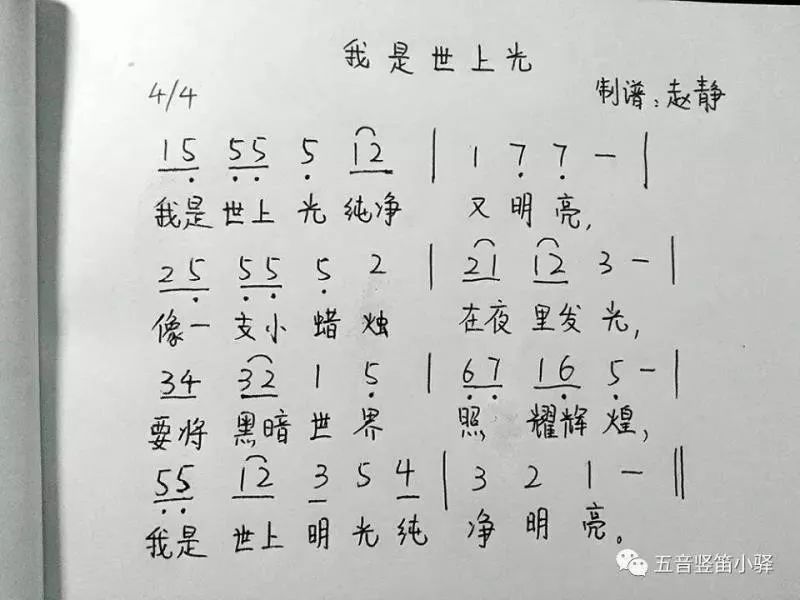 我是世上光
4/4 制谱:赵静
15 55 5 12 | 1 7 7 - |
我是世上光纯净 又明亮,
25 55 5 2 | 21 12 3 - |
像一支小蜡烛 在夜里发光,
34 32 1 5 | 67 16 5 - |
要将黑暗世界 照耀辉煌,
55 12 3 5 4 | 3 2 1 - ||
我是世上明光纯 净明亮。
五音竖笛小驿